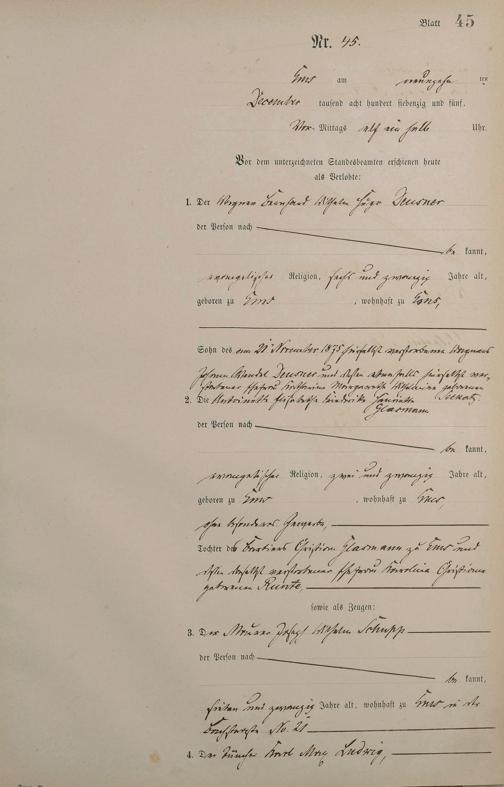 Blatt 45
Nr. 45.
Ems am neunzehn ten
December tausend acht hundert siebenzig und fünf,
Vor Mittags elf ein halb Uhr.
Vor dem unterzeichneten Standesbeamten erschienen heute
als Verlobte:
1. Der Bernhard Wilhelm Hugo Deusner
der Person nach
be kannt,
evangelischer Religion, sechs und zwanzig Jahre alt,
geboren zu Ems, wohnhaft zu Ems,
Sohn des am November 1875 hierselbst verstorbenen Bergmanns
Johann Deusner und dessen ebenfalls hierselbst ver-
storbener Ehefrau Katharina Margaretha geborenen
2. Die Antoinette Elisabetha Friederike Henriette
Glasmann
der Person nach
be kannt,
evangelischer Religion, zwei und zwanzig Jahre alt,
geboren zu Ems, wohnhaft zu Ems,
ohne besonderes Gewerbe,
Tochter des Christian Glasmann zu Ems und
dessen daselbst verstorbener Ehefrau Karolina Christiane
geborenen Runte,
sowie als Zeugen:
3. Der Maurer Josef Wilhelm Schupp
der Person nach
be kannt,
sieben und zwanzig Jahre alt, wohnhaft zu Ems, in der
No. 21
4. Der Tüncher Karl Max Ludwig,